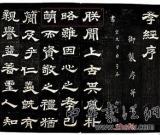 孝經序
御製序并
朕聞上古其風朴
略雖因心之孝已
萌而資敬之禮猶
簡及乎仁義既有
親譽益著聖人知